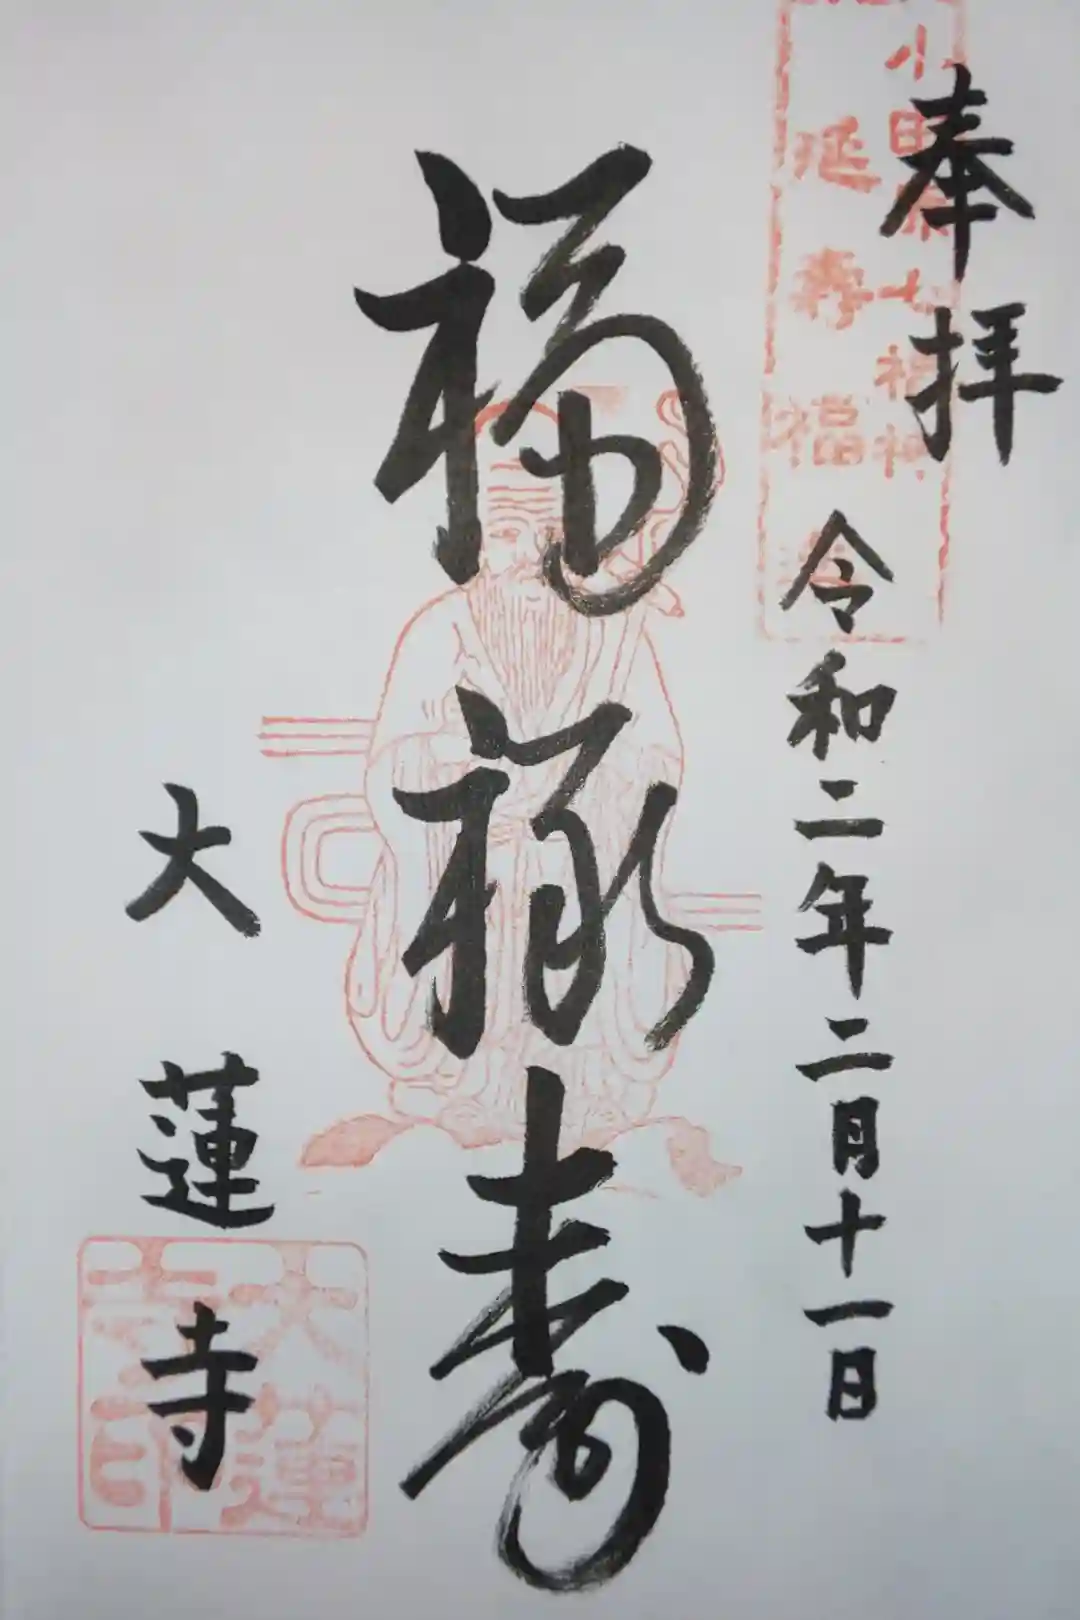 奉拝
小田原七福神
延寿福
令和二年二月十一日
福禄寿
大蓮寺
大蓮
寺印